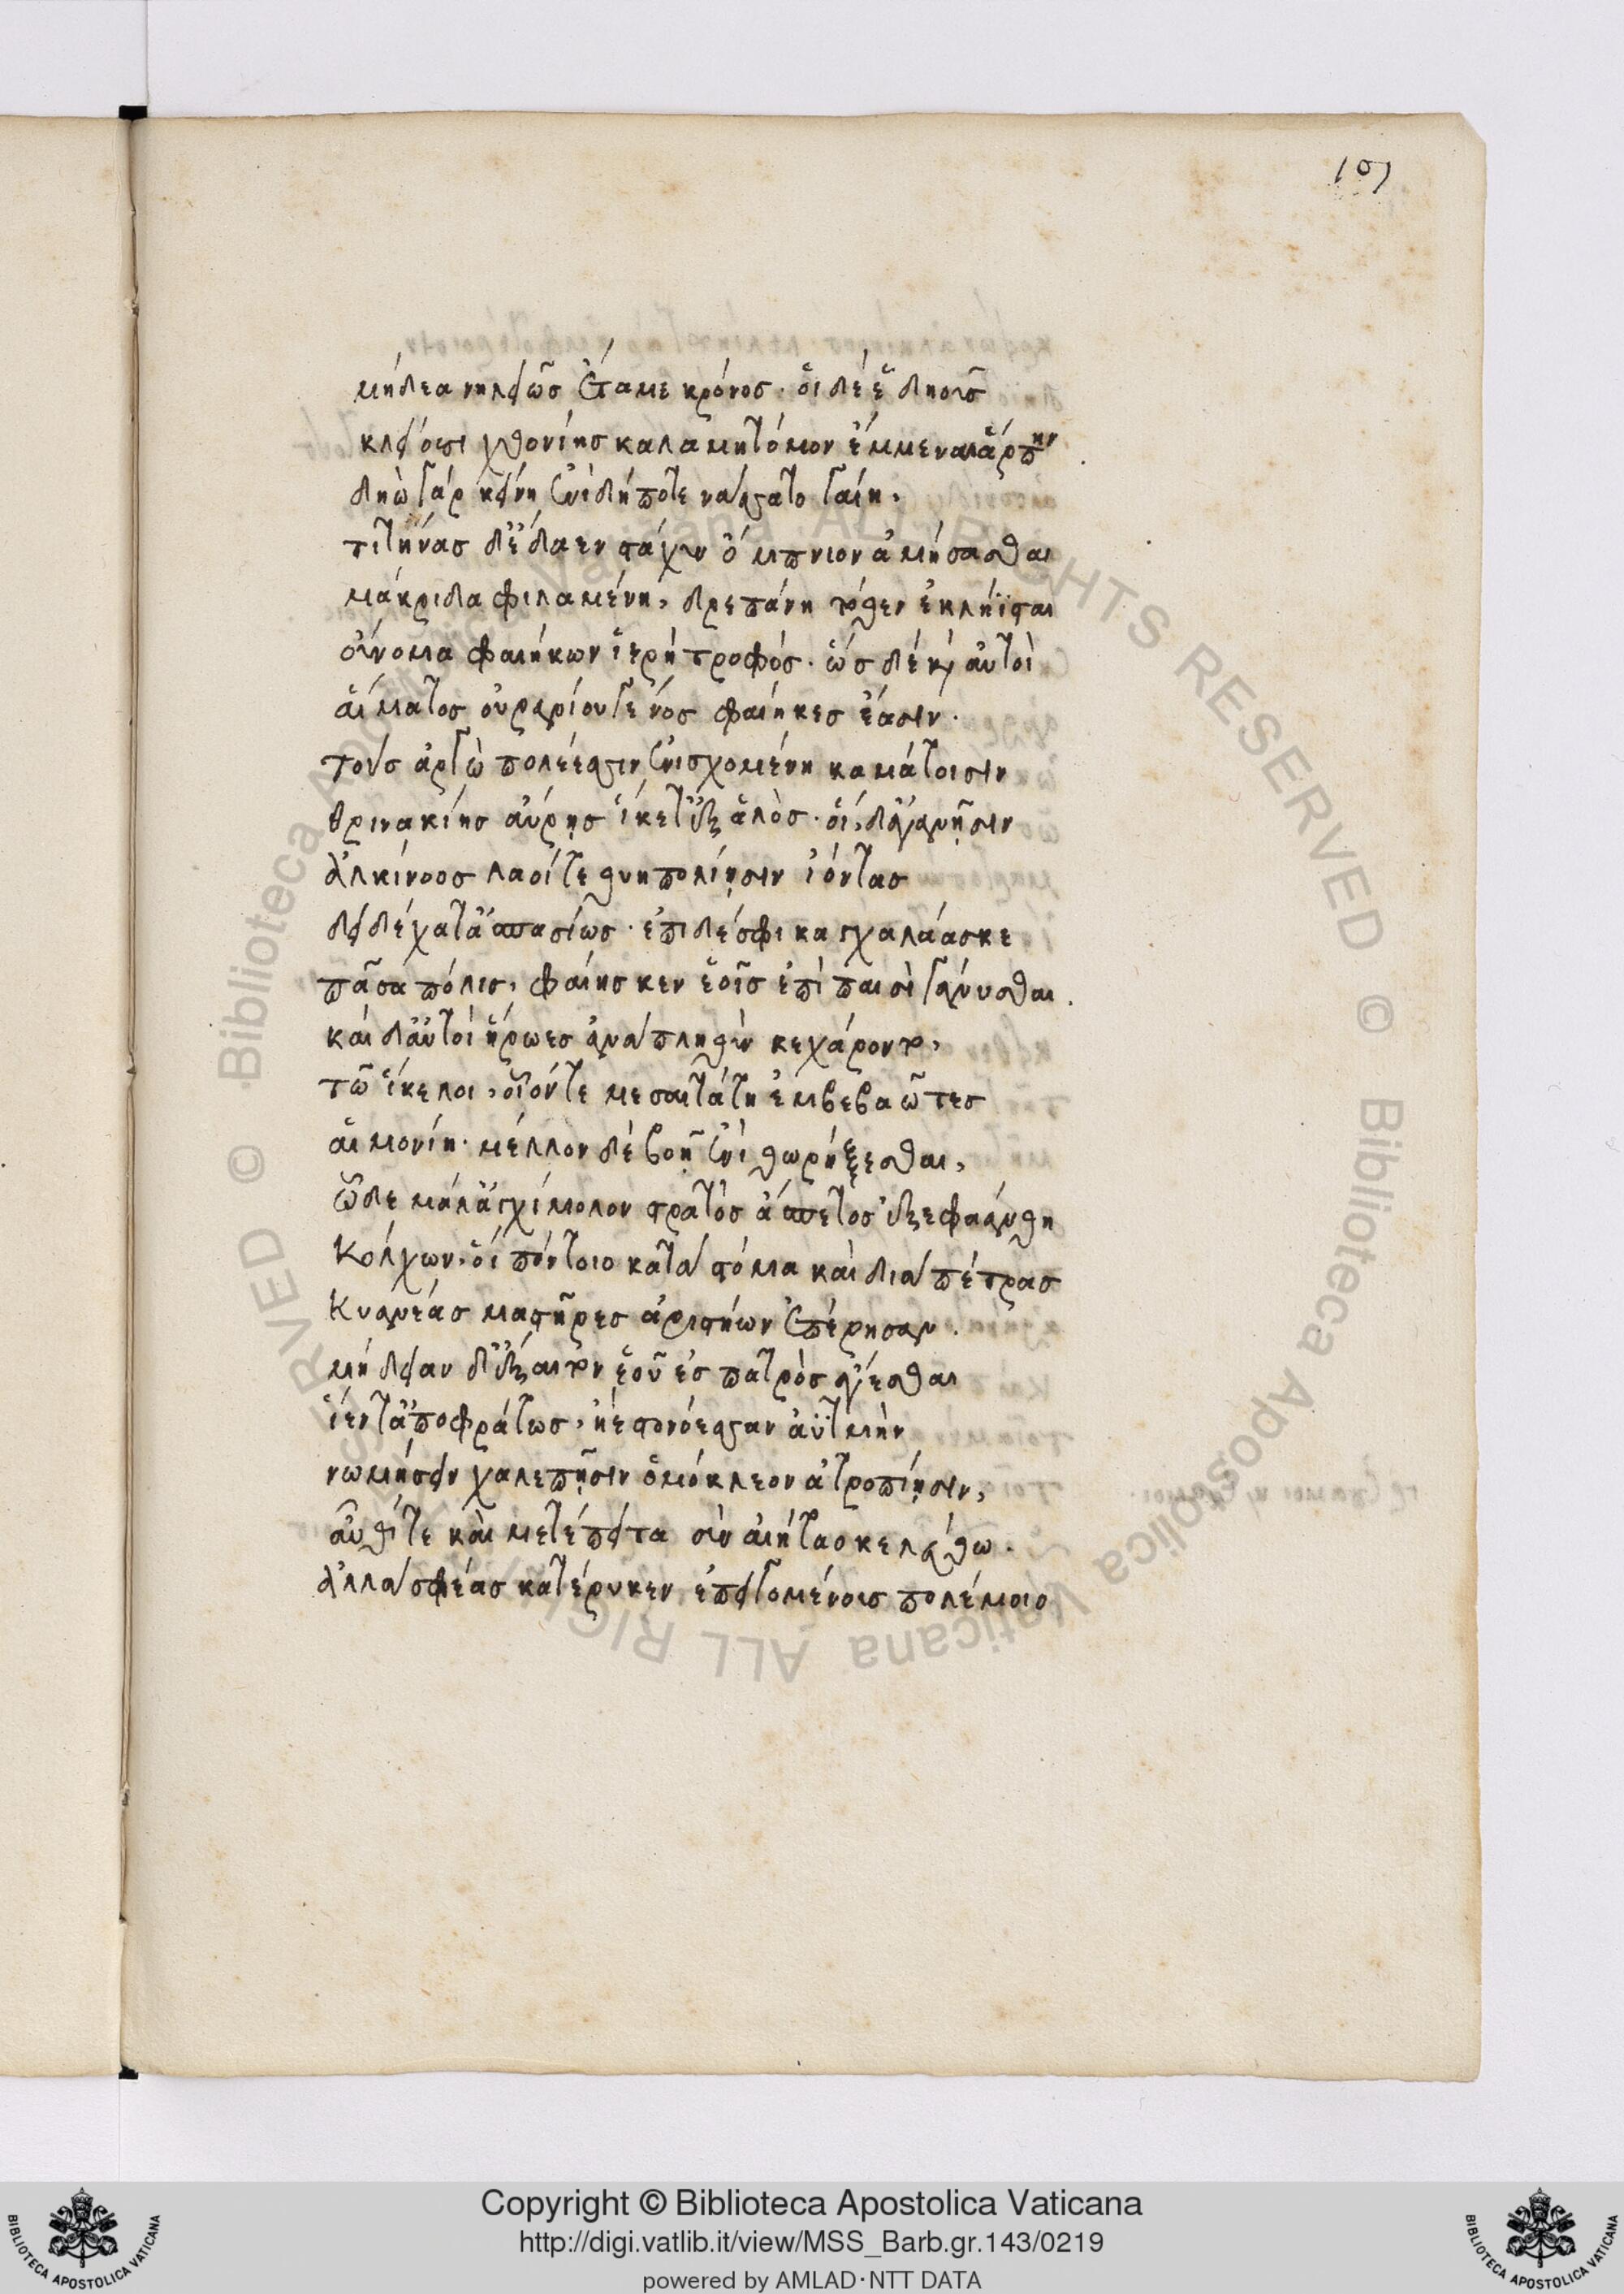 107
μήδεα νηλειῶς ἔταμε κρόνος· οἱ δέ ἑ δηοῦς
κλείουσι χθονίης καλαμητόμον ἔμμεναι ἅρπην.
δηὼ γάρ κείνῃ ἐνὶ δήποτε νάσσατο γαίῃ,
τιτῆνας δ' ἔδαεν στάχυν ὄμπνιον ἀμήσασθαι
μάκριδα φιλαμένη, δρεπάνη τόθεν ἐκλήϊσται
οὔνομα φαιήκων ἱερὴ τροφός· ὣς δὲ καὶ αὐτοὶ
αἵματος οὐρανίου γένος φαίηκες ἔασιν.
τοὺς ἀργὼ πολέεσσιν ἐνισχομένη καμάτοισιν
θρινακίης αὔρης ἵκετ' ἐξ ἁλός· οἱ δ' ἀγανῇσιν
ἀλκίνοος λαοί τε θυηπολίῃσιν ἰόντας
δειδέχατ' ἀσπασίως· ἐπὶ δέ σφι καγχαλάασκε
πᾶσα πόλις, φαίης κεν ἑοῖς ἐπὶ παισὶ γάνυσθαι.
καὶ δ' αὐτοὶ ἥρωες ἀνὰ πληθὺν κεχάροντο,
τῷ ἴκελοι, οἷόν τε μεσαιτάτῃ ἐμβεβαῶτες
αἱμονίῃ· μέλλον δὲ βοῇ ἔνι θωρήξεσθαι,
ὧδε μάλ' ἀγχίμολον στρατὸς ἄσπετος ἐξεφαάνθη
Κόλχων, οἳ πόντοιο κατὰ στόμα καὶ διὰ πέτρας
Κυανέας μαστῆρες ἀριστήων ἐπέρησαν.
μήδειαν δ' ἔξαιτον ἑοῦ ἐς πατρὸς ἄγεσθαι
ἵεντ' ἀποφράτως, ἠὲ στονόεσσαν ἀϋτμὴν
νωμήσειν χαλεπῇσιν ὁμόκλεον ἀτροπίῃσιν,
αὖθί τε καὶ μετέπειτα σὺν αἰήταο κελεύθω.
ἀλλὰ σφέας κατέρυκεν ἐπειγομένοις πολέμοιο
Copyright © Biblioteca Apostolica Vaticana
http://digi.vatlib.it/view/MSS_Barb.gr.143/0219
powered by AMLAD·NTT DATA